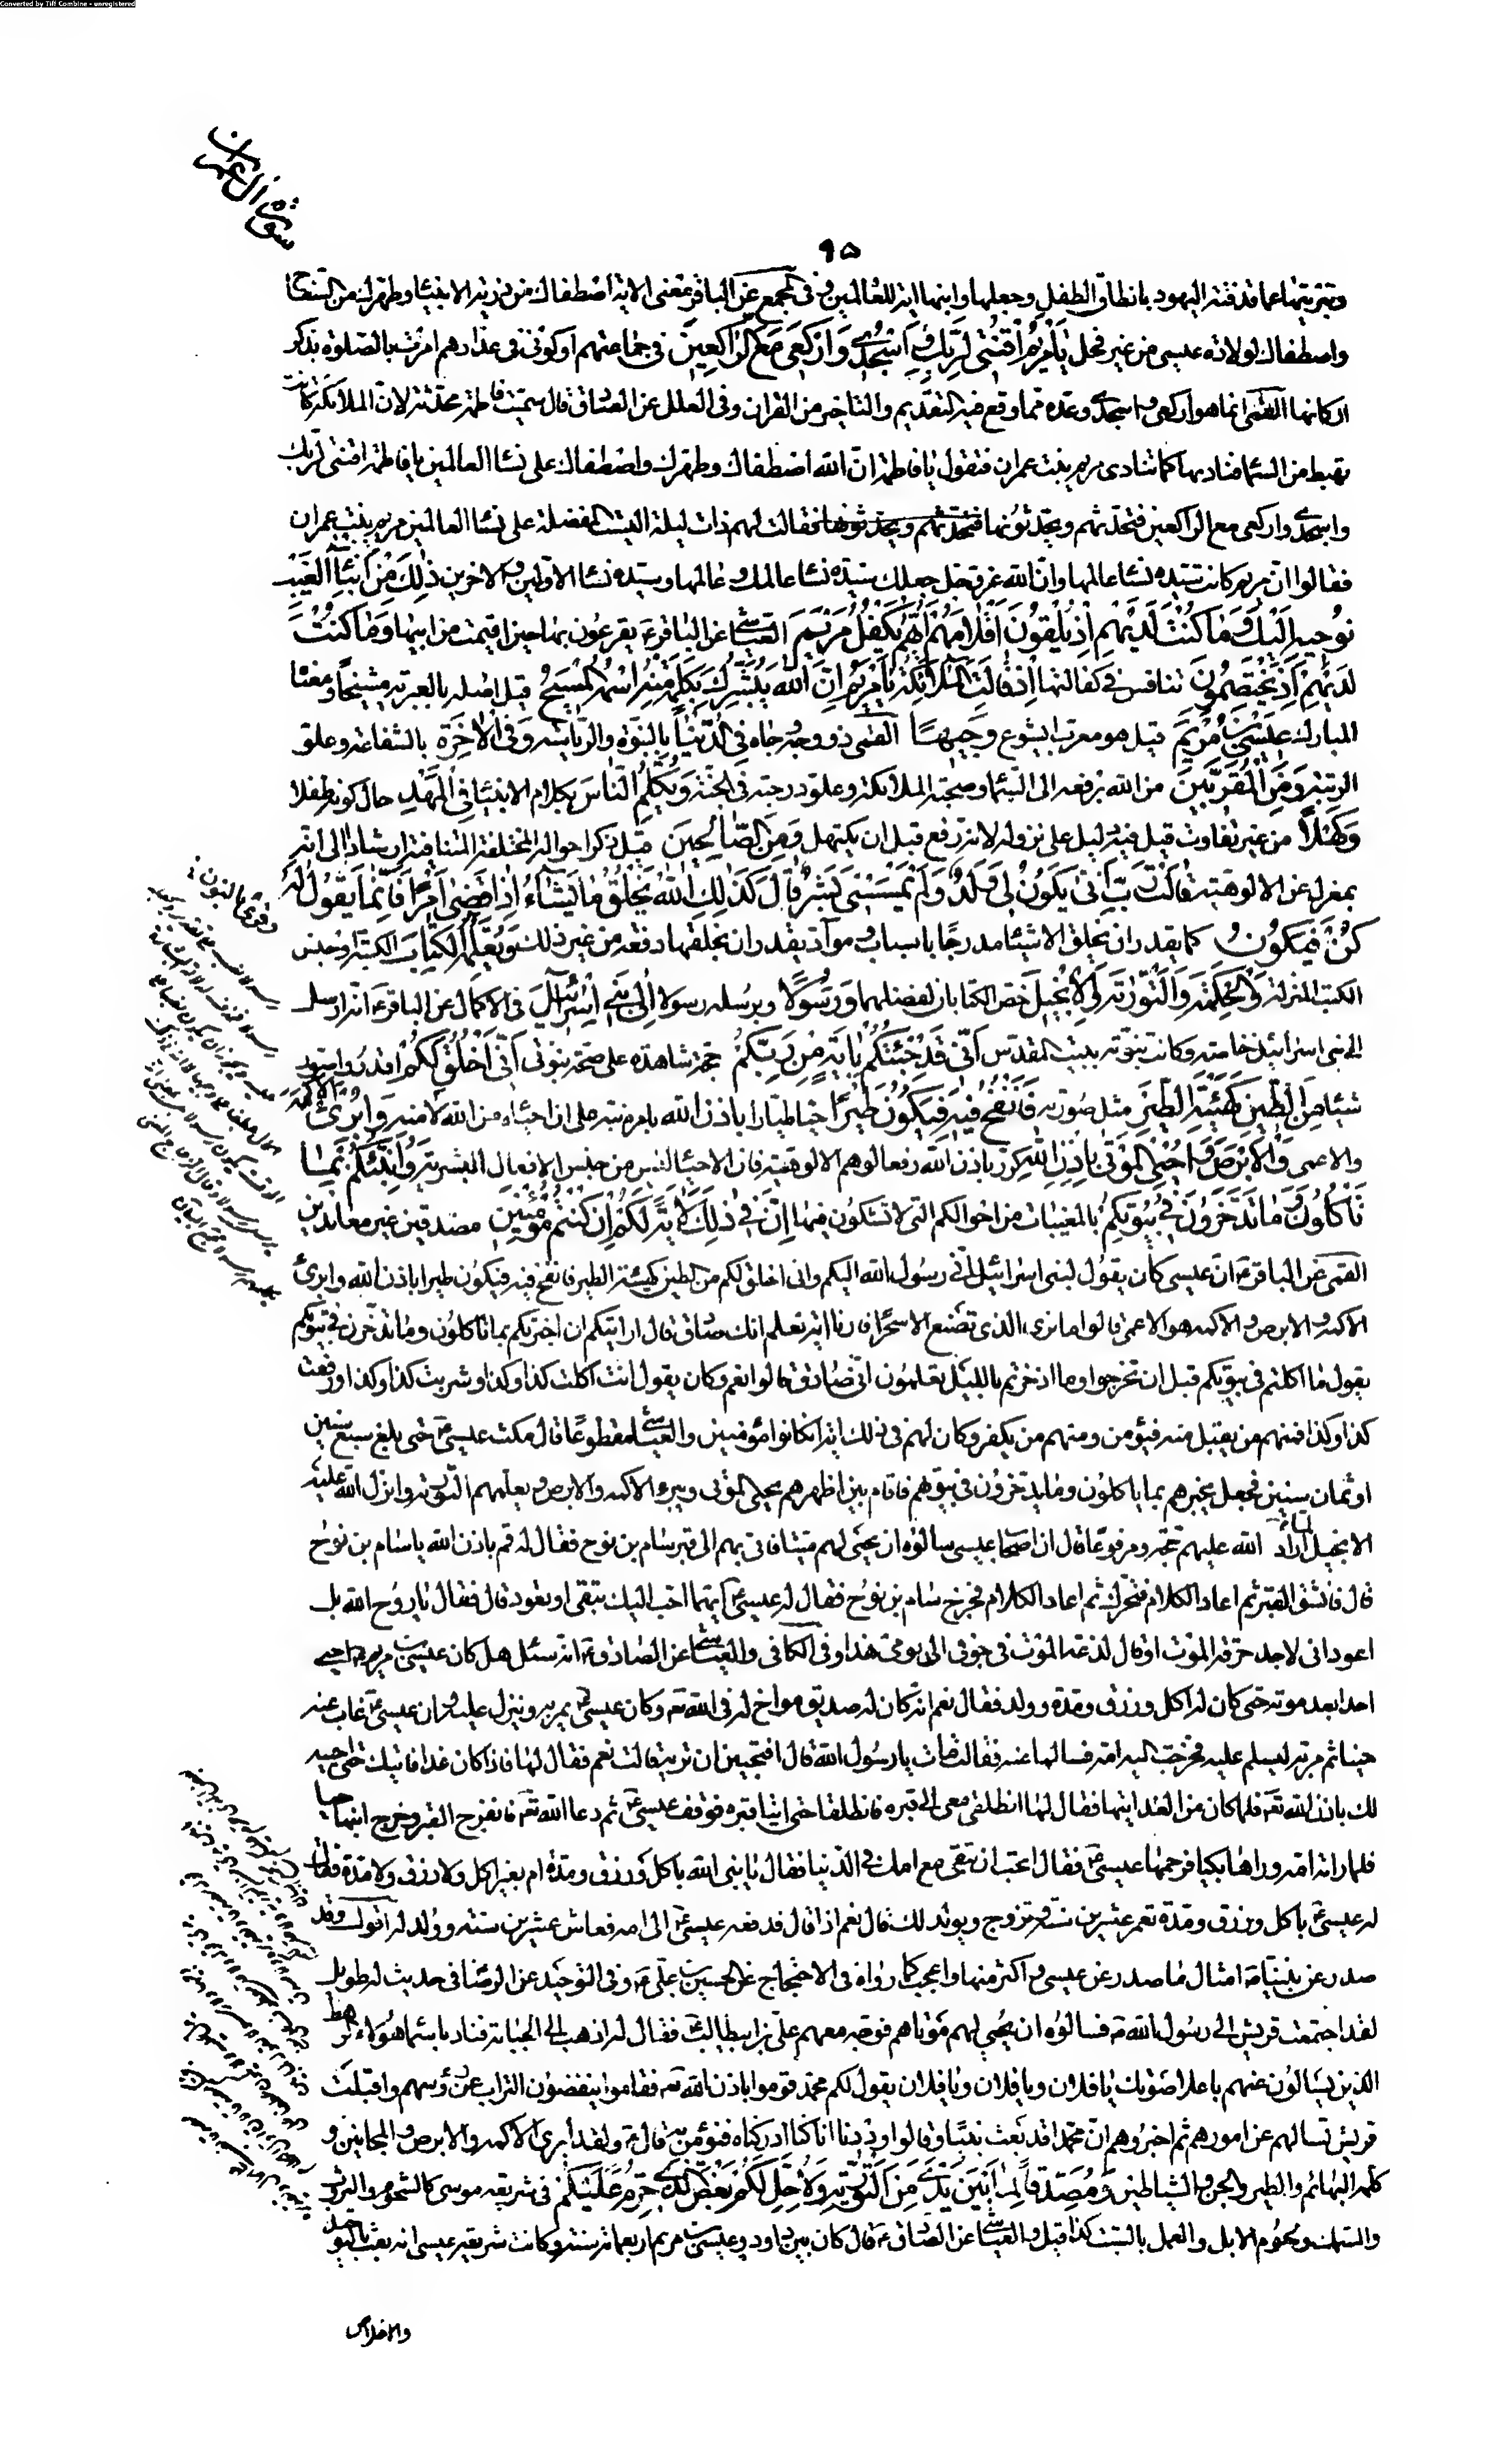 Converted by Tiff Combine - unregistered
سورة ال عمران
٩٥
وتبرئتها عما قذفته اليهود بانطاق الطفل وجعلها وابنها اية للعالمين وفى المجمع عن الباقر معنى الاية اصطفاك من ذرية الانبياء وطهرك من السفاح
واصطفاك لولادة عيسى من غير فحل يَا مَرْيَمُ اقْنُتِي لِرَبِّكِ وَاسْجُدِي وَارْكَعِي مَعَ الرَّاكِعِينَ فى جماعتهم او كونى فى عدادهم امرت بالصلوة بذكر
اركانها القمى انما هو اركعى واسجدى وعده مما وقع فيه التقديم والتاخير من القران وفى العلل عن الصادق قال سميت فاطمة محدثة لان الملائكة كانت
تهبط من السماء فتناديها كما تنادى مريم بنت عمران فتقول يا فاطمة ان الله اصطفاك وطهرك واصطفاك على نساء العالمين يا فاطمة اقنتى لربك
واسجدى واركعى مع الراكعين فتحدثهم ويحدثونها فقالت لهم ذات ليلة اليست المفضلة على نساء العالمين مريم بنت عمران
فقالوا ان مريم كانت سيدة نساء عالمها وان الله عز وجل جعلك سيدة نساء عالمك وعالمها وسيدة نساء الاولين والاخرين ذَلِكَ مِنْ أَنْبَاءِ الْغَيْبِ
نُوحِيهِ إِلَيْكَ وَمَا كُنْتَ لَدَيْهِمْ إِذْ يُلْقُونَ أَقْلَامَهُمْ أَيُّهُمْ يَكْفُلُ مَرْيَمَ العياشى عن الباقر ع يقرعون بها حين ايتمت من ابيها وَمَا كُنْتَ
لَدَيْهِمْ إِذْ يَخْتَصِمُونَ تنافسا فى كفالتها إِذْ قَالَتِ الْمَلَائِكَةُ يَا مَرْيَمُ إِنَّ اللهَ يُبَشِّرُكِ بِكَلِمَةٍ مِنْهُ اسْمُهُ الْمَسِيحُ قيل اصله بالعبرية مشيحا ومعناه
المبارك عِيسَى بْنُ مَرْيَمَ قيل هو معرب ايشوع وَجِيهًا القمى ذو وجه وجاه فِي الدُّنْيَا بالنبوة والرياسة وَفِي الْآخِرَةِ بالشفاعة وعلو
الرتبة وَمِنَ الْمُقَرَّبِينَ من الله برفعه الى السماء وصحبة الملائكة وعلو درجته فى الجنة وَيُكَلِّمُ النَّاسَ بكلام الانبياء فِي الْمَهْدِ حال كونه طفلا
وَكَهْلًا من غير تفاوت قيل فيه دليل على نزوله لانه رفع قبل ان يكتهل وَمِنَ الصَّالِحِينَ قيل ذكر احواله المختلفة المتنافية ارشادا الى انه
بمعزل عن الالوهية قَالَتْ رَبِّ أَنَّى يَكُونُ لِي وَلَدٌ وَلَمْ يَمْسَسْنِي بَشَرٌ قَالَ كَذَلِكِ اللهُ يَخْلُقُ مَا يَشَاءُ إِذَا قَضَى أَمْرًا فَإِنَّمَا يَقُولُ لَهُ
كُنْ فَيَكُونُ كما يقدر ان يخلق الاشياء مدرجا باسباب ومواد يقدر ان يخلقها دفعة من غير ذلك وَيُعَلِّمُهُ الْكِتَابَ الكتبة او جنس
الكتب المنزلة وَالْحِكْمَةَ وَالتَّوْرَاةَ وَالْإِنْجِيلَ خص الكتابان لفضلهما وَرَسُولًا ويرسله رسولا إِلَى بَنِي إِسْرَائِيلَ فى الاكمال عن الباقر ع انه ارسل
الى بنى اسرائيل خاصة وكانت نبوته ببيت المقدس أَنِّي قَدْ جِئْتُكُمْ بِآيَةٍ مِنْ رَبِّكُمْ حجة شاهدة على صحة نبوتى أَنِّي أَخْلُقُ لَكُمْ اقدر واصور
شيئا مِنَ الطِّينِ كَهَيْئَةِ الطَّيْرِ مثل صورته فَأَنْفُخُ فِيهِ فَيَكُونُ طَيْرًا حيا طيارا باذن الله بامره نبه على ان احياءه من الله لا منه وَأُبْرِئُ الْأَكْمَهَ
والاعمى وَالْأَبْرَصَ وَأُحْيِي الْمَوْتَى بِإِذْنِ اللهِ كرر باذن الله دفعا لوهم الالوهية فان الاحياء ليس من جنس الافعال البشرية وَأُنَبِّئُكُمْ بِمَا
تَأْكُلُونَ وَمَا تَدَّخِرُونَ فِي بُيُوتِكُمْ بالمغيبات من احوالكم التى لا تشكون فيها إِنَّ فِي ذَلِكَ لَآيَةً لَكُمْ إِنْ كُنْتُمْ مُؤْمِنِينَ مصدقين غير معاندين
القمى عن الباقر ع ان عيسى كان يقول لبنى اسرائيل انى رسول الله اليكم وانى اخلق لكم من الطين كهيئة الطير فانفخ فيه فيكون طيرا باذن الله وابرئ
الاكمه والابرص والاكمه هو الاعمى قالوا ما نرى الذى تصنع الا سحرا فارنا اية نعلم انك صادق قال ارايتكم ان اخبرتكم بما تاكلون وما تدخرون فى بيوتكم
يقول ما اكلتم فى بيوتكم قبل ان تخرجوا وما ادخرتم بالليل تعلمون انى صادق قالوا نعم وكان يقول انت اكلت كذا وكذا وشربت كذا وكذا ورفعت
كذا وكذا فمنهم من يقبل منه فيؤمن ومنهم من يكفر وكان لهم فى ذلك اية ان كانوا مؤمنين والعياشى مقطوعا قال مكث عيسى ع حتى بلغ سبع سنين
او ثمان سنين فجعل يخبرهم بما ياكلون وما يدخرون فى بيوتهم فاقام بين اظهرهم يحيى الموتى ويبرء الاكمه والابرص ويعلمهم التورية وانزل الله عليه
الانجيل لما اراد الله عليهم حجة ومرفوعا قال ان اصحاب عيسى سالوه ان يحيى لهم ميتا فاتى بهم الى قبر سام بن نوح فقال له قم باذن الله يا سام بن نوح
قال فانشق القبر ثم اعاد الكلام فتحرك ثم اعاد الكلام فخرج سام بن نوح فقال له عيسى ع ايهما احب اليك تبقى او تعود قال فقال يا روح الله بل
اعود انى لاجد حرقة الموت او قال لذعة الموت فى جوفى الى يومى هذا وفى الكافى والعياشى عن الصادق ع انه سئل هل كان عيسى بن مريم احيى
احدا بعد موته حتى كان له اكل ورزق ومدة وولد فقال نعم انه كان له صديق مواخ له فى الله تعه وكان عيسى ع يمر به وينزل عليه وان عيسى ع غاب عنه
حينا ثم مر به ليسلم عليه فخرجت اليه امه فسالها عنه فقالت مات يا رسول الله قال افتحبين ان تريه قالت نعم فقال لها فاذا كان غدا فاتيك حتى احييه
لك باذن الله تعه فلما كان من الغد اتيها فقال لها انطلقى معى الى قبره فانطلقا حتى اتيا قبره فوقف عيسى ع ثم دعا الله تعه فانفرج القبر وخرج ابنها حيا
فلما راته امه وراها بكيا فرحمها عيسى ع فقال اتحب ان تبقى مع امك فى الدنيا فقال يا نبى الله باكل ورزق ومدة ام بغير اكل ولا رزق ولا مدة فقال
له عيسى ع باكل ورزق ومدة تعمر عشرين سنة وتزوج ويولد لك قال نعم اذا قال فدفعه عيسى ع الى امه فعاش عشرين سنة وولد له اقول وقد
صدر عن نبينا ص امثال ما صدر عن عيسى ع واكثر منها واعجب كما رواه فى الاحتجاج عن الحسين بن على ع وفى التوحيد عن الرضا فى حديث له طويل
لقد اجتمعت قريش الى رسول الله ص فسالوه ان يحيى لهم موتاهم فوجه معهم على بن ابيطالب ع فقال له اذهب الى الجبانة فناد باسماء هؤلاء الرهط
الذين يسالون عنهم باعلى صوتك يا فلان ويا فلان ويا فلان يقول لكم محمد قوموا باذن الله تعه فقاموا ينفضون التراب عن رؤسهم واقبلت
قريش تسالهم عن امورهم ثم اخبروهم ان محمدا قد بعث نبيا وقالوا وددنا انا كنا ادركناه فنؤمن به قال ع ولقد ابرئ الاكمه والابرص والمجانين و
كلمه البهائم والطير والجن والشياطين وَمُصَدِّقًا لِمَا بَيْنَ يَدَيَّ مِنَ التَّوْرَاةِ وَلِأُحِلَّ لَكُمْ بَعْضَ الَّذِي حُرِّمَ عَلَيْكُمْ فى شريعة موسى كالشحوم والثرب
والسمك ولحوم الابل والعمل بالسبت كذا قيل والعياشى عن الصادق ع قال كان بين داود وعيسى بن مريم اربعمائة سنة وكانت شريعة عيسى انه بعث بالتوحيد
والاخلاص
وقرئ بالنون